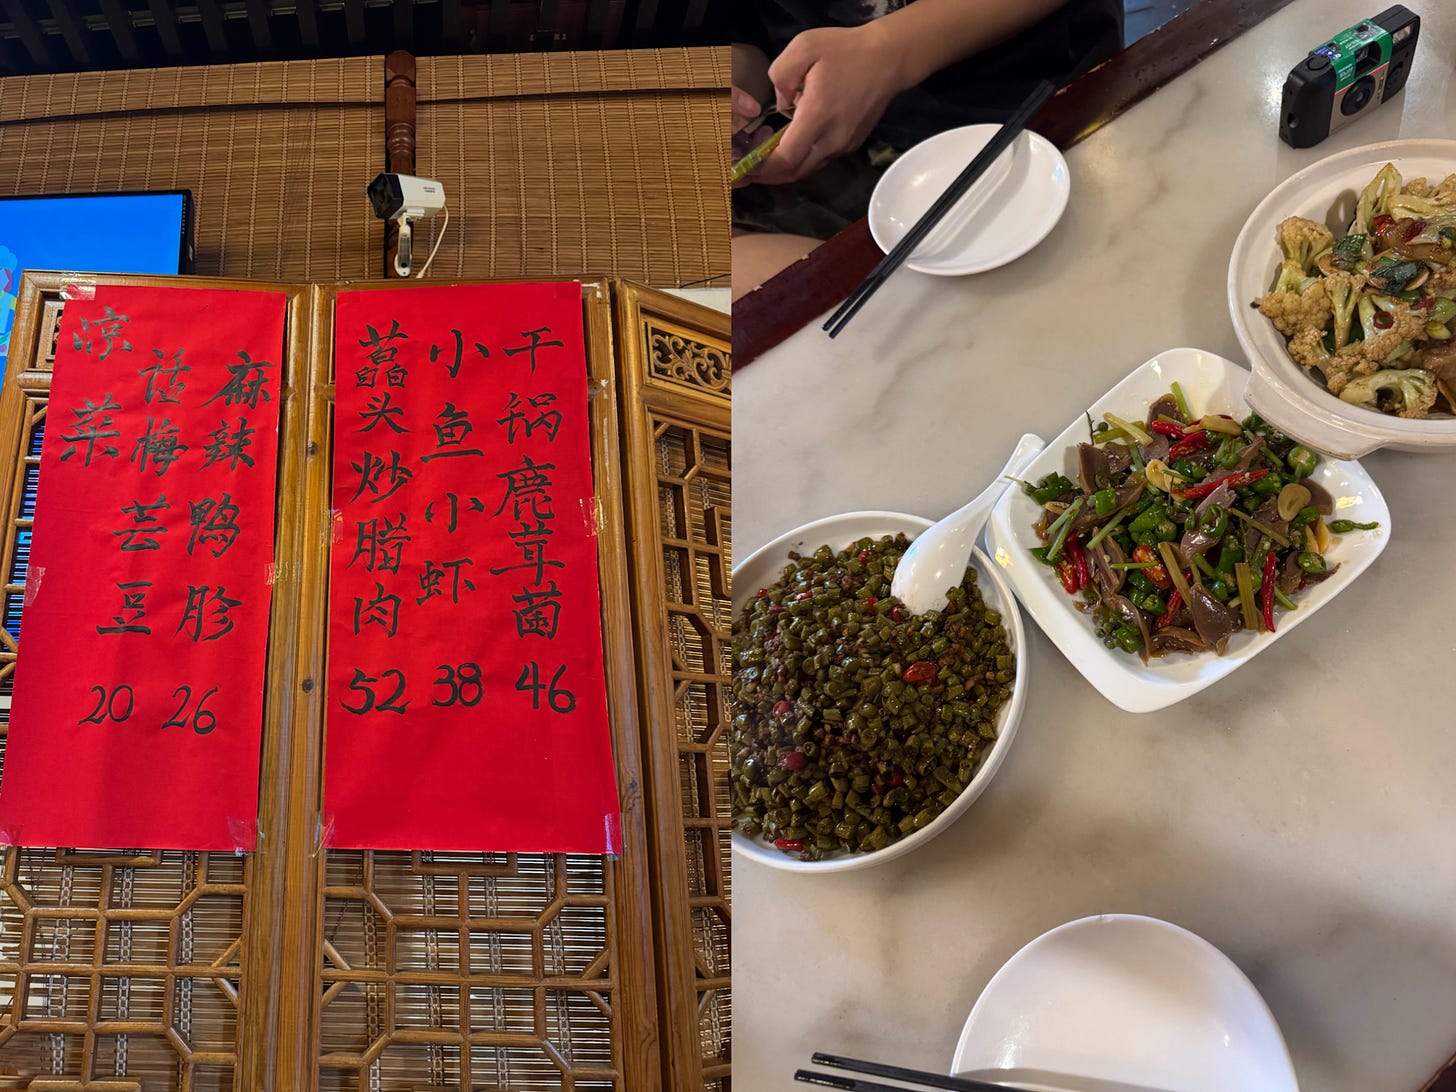 凉菜
话梅芸豆 20
麻辣鸭胗 26
藠头炒腊肉 52
小鱼小虾 38
干锅鹿茸菌 46